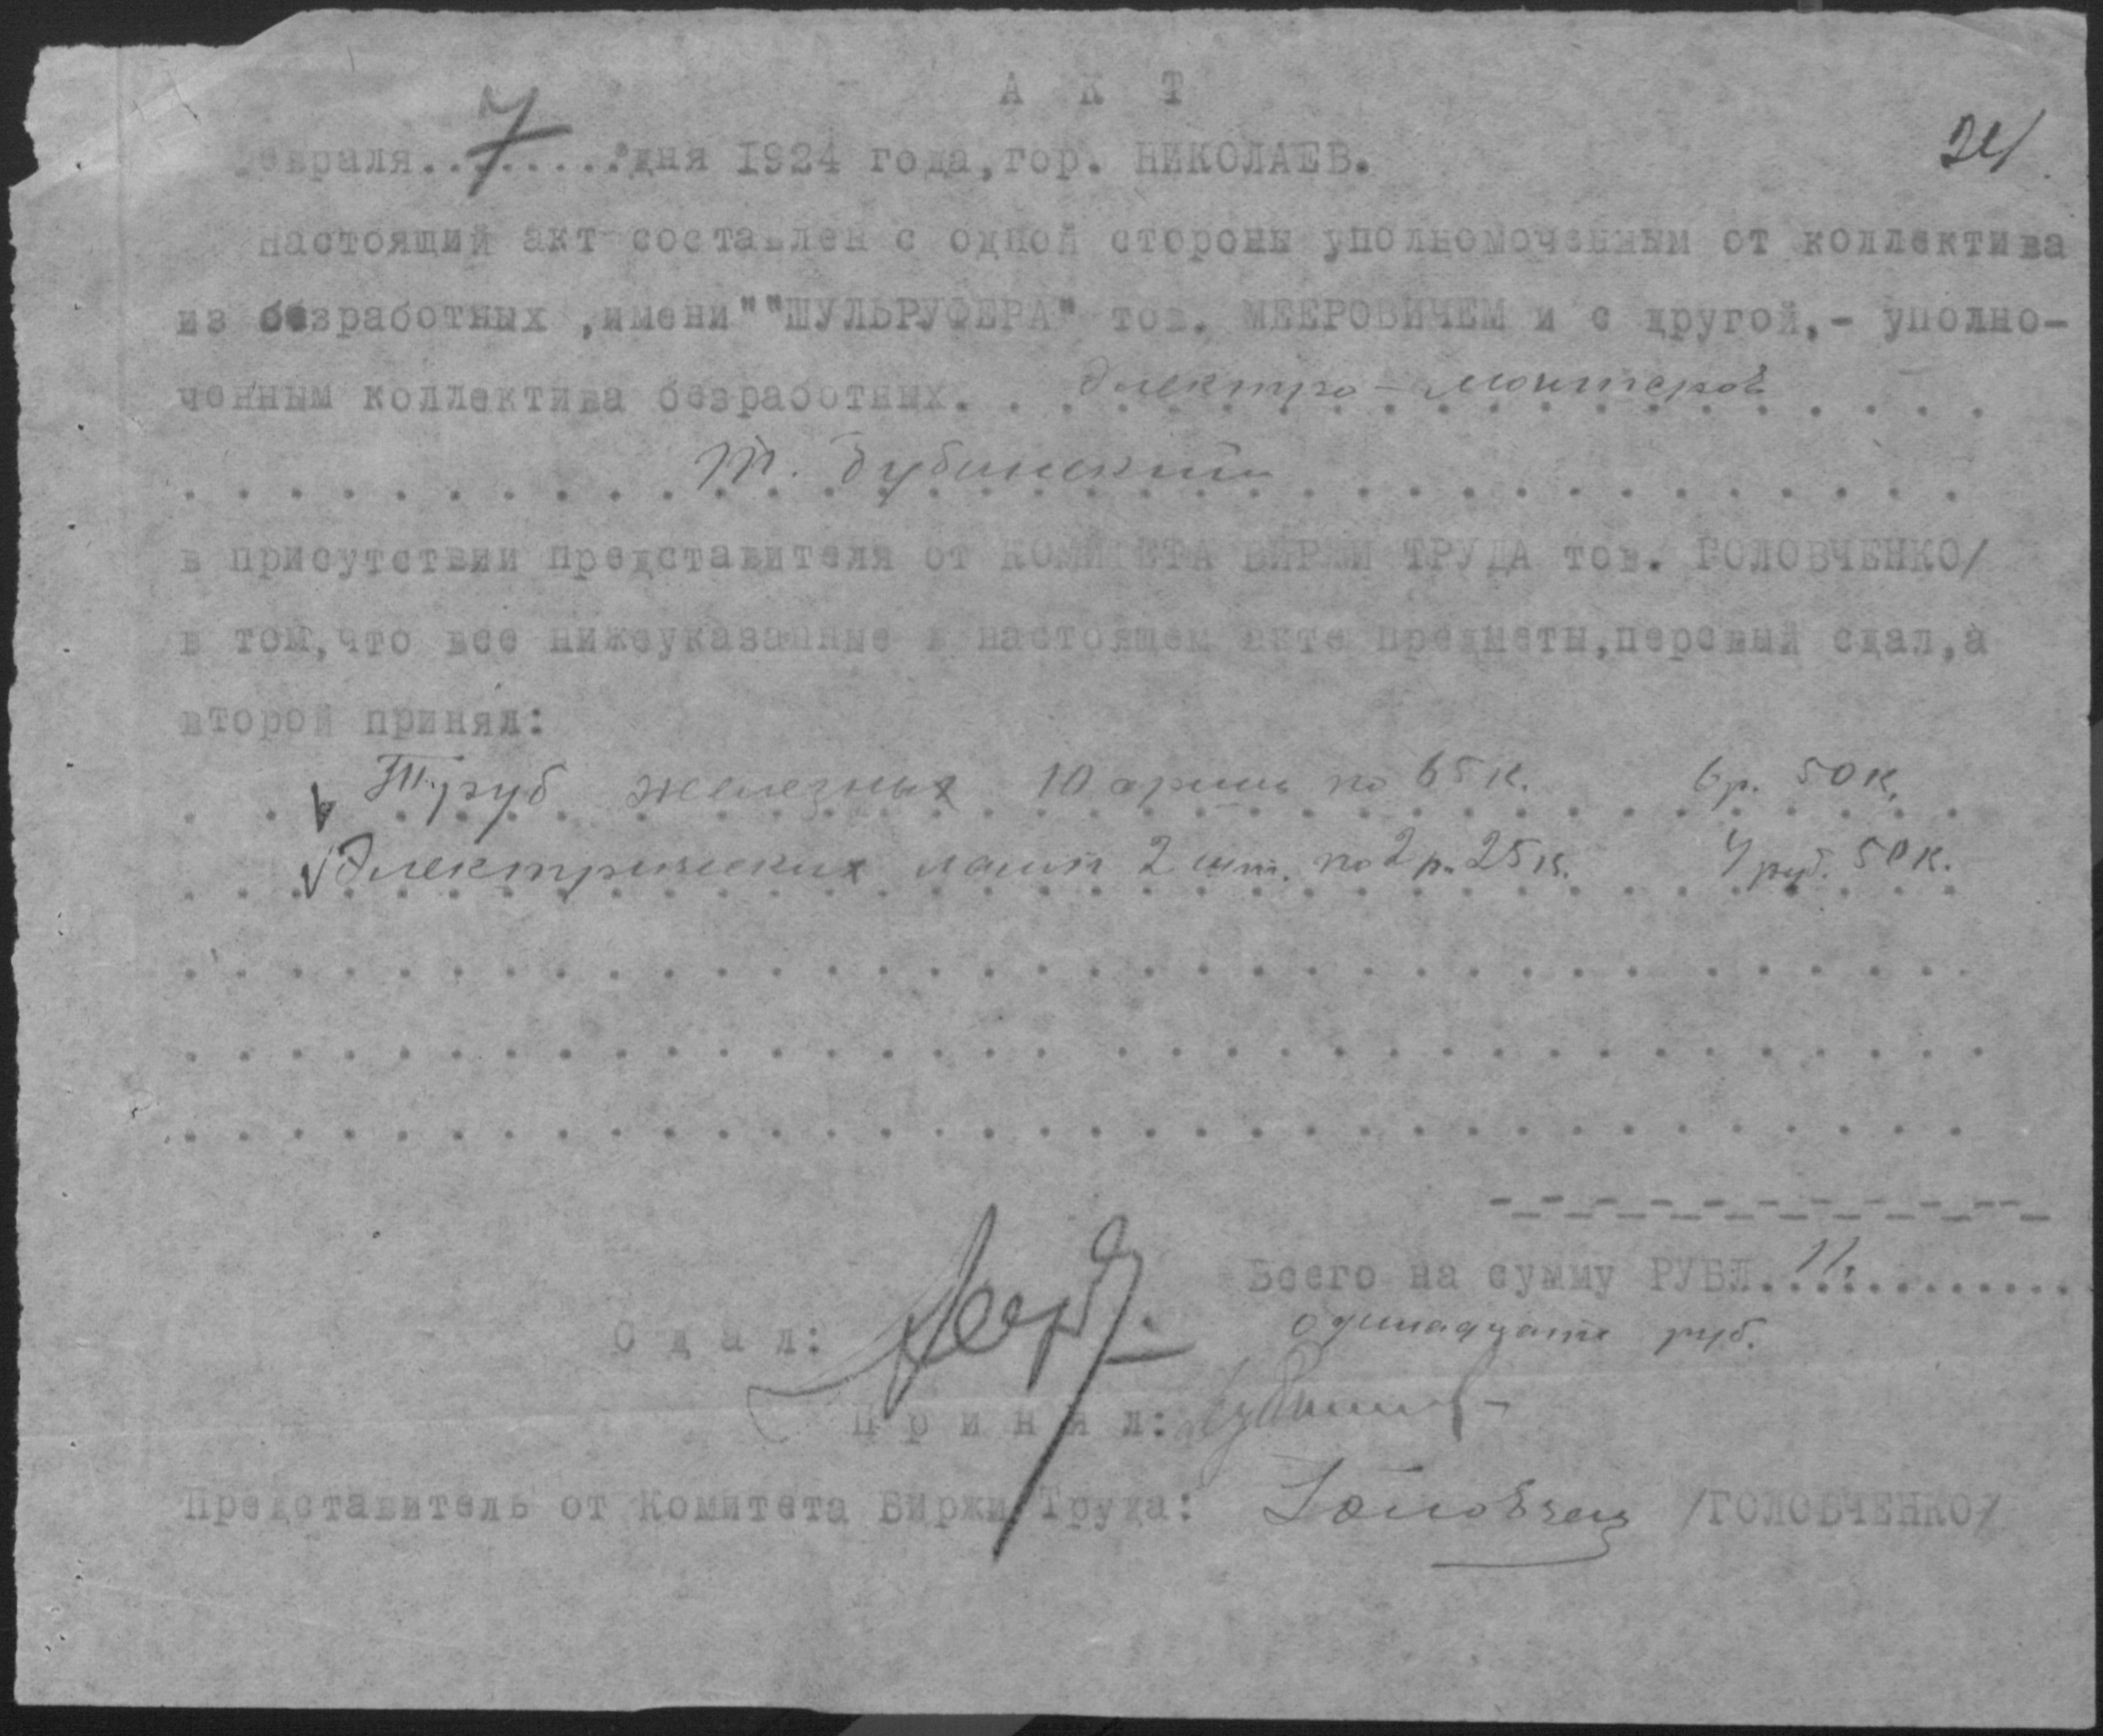 А К Т
24
евраля..7......дня 1924 года,гор. НИКОЛАЕВ.
Настоящий акт составлен с одной стороны уполномоченным от коллектива
из безработных ,имени""ШУЛЬРУФЕРА" тов. МЕЕРОВИЧЕМ и с другой,- уполно-
ченным коллектива безработных. Электро-монтеров
т. Дубинский
в присутствии представителя от КОМИТЕТА БИРЖИ ТРУДА тов. ГОЛОВЧЕНКО/
в том,что все нижеуказанные в настоящем акте предметы,первый сдал,а
второй принял:
Труб железных 10 аршин по 65 к. 6 р. 50 к.
Электрических ламп 2 шт. по 2 р. 25 к. 4 руб. 50 к.
Всего на сумму РУБЛ. 11
одинадцать руб.
С д а л:
П р и н я л:
Представитель от Комитета Биржи Труда: Головчен /ГОЛОВЧЕНКО/